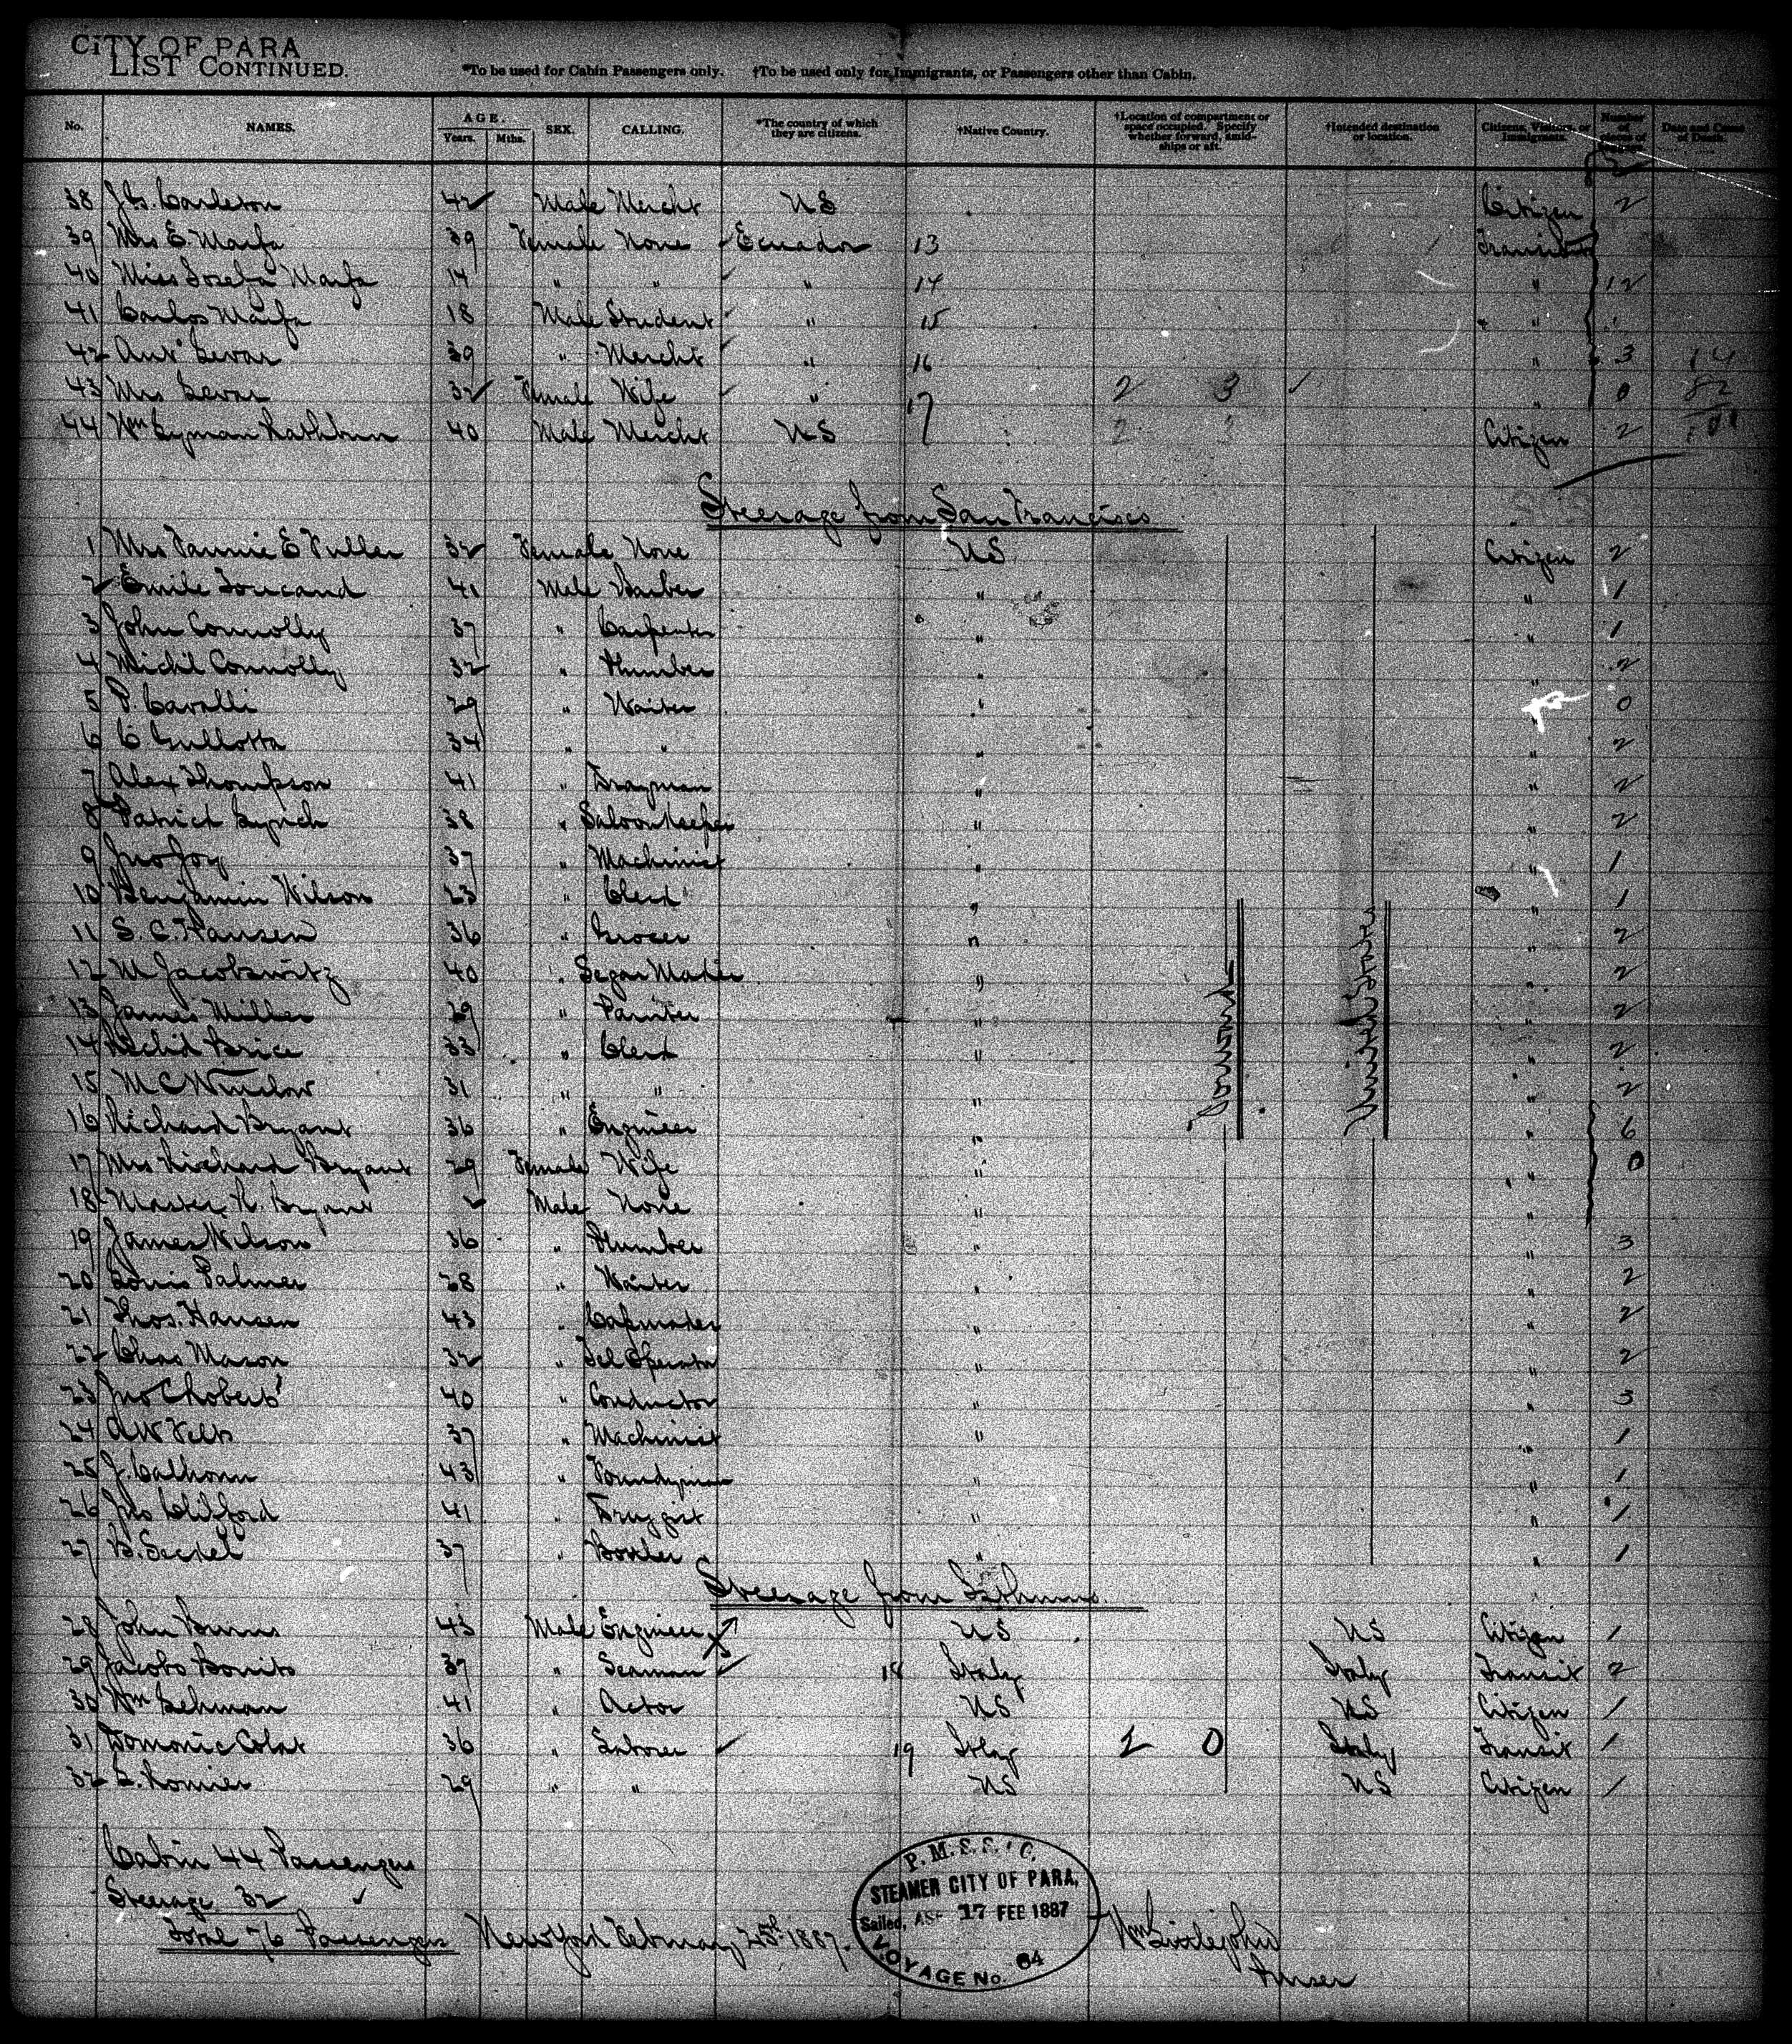 CITY OF PARA
LIST CONTINUED.
*To be used for Cabin Passengers only. †To be used only for Immigrants, or Passengers other than Cabin.
No. NAMES. AGE. Years. Mths. SEX. CALLING. *The country of which they are citizens. †Native Country. †Location of compartment or space occupied. Specify whether forward, amidships or aft. †Intended destination or location. Citizens, Visitors, or Immigrants. Number of pieces of baggage. Date and Cause of Death.
38 Carleton 42 Male Mercht US Citizen 2
39 Mrs E. 39 Female None Ecuador 13
40 Miss Josefa 14 " " " 14 " 12
41 Carlos 18 Male Student " 15 "
42 Anto 39 " Mercht " 16 " 3 14
43 Mrs 32 Female Wife " 17 2 3 " 0 82
44 Wm Lyman Rathbun 40 Male Mercht US Citizen 2
Steerage from San Francisco
1 Mrs Fannie E Fuller 32 Female None US Citizen 2
2 Emile 41 Male Barber " " 1
3 John Connolly 37 " Carpenter " " 1
4 Michl Connolly 32 " Plumber " " 2
5 P. Cavalli 29 " Waiter " " 0
6 C. Gullotta 34 " " " " 2
7 Alex Thompson 41 " Drayman " " 2
8 Patrick Lynch 38 " Saloon Keeper " " 2
9 Jno Joy 37 " Machinist " " 1
10 Benjamin Wilson 23 " Clerk " " 1
11 S. C. Hansen 36 " Grocer " " 2
12 M Jacobowitz 40 " Segar Maker " " 2
13 James Miller 29 " Painter " " 2
14 Brice 33 " Clerk " " 2
15 M C Winslow 31 " " " " 2
16 Richard Bryant 36 " Engineer " " 6
17 Mrs Richard Bryant 29 Female Wife " " 0
18 Master R. Bryant Male None " "
Forward
United States
19 James Wilson 36 " Plumber " " 3
20 Louis Palmer 28 " Waiter " " 2
21 Thos. Hansen 43 " Capmaker " " 2
22 Chas Mason 32 " Tel Operator " " 2
23 Jno 40 " Conductor " " 3
24 A W 37 " Machinist " " 1
25 J. Calhoun 43 " Foundryman " " 1
26 Jno Clifford 41 " Druggist " " 1
27 B. 37 " " " 1
Steerage from Isthmus
28 John Burns 43 Male Engineer US US Citizen 1
29 Jacobo Bonito 37 " Seaman 18 Italy Italy Transit 2
30 Wm Lehman 41 " Actor US US Citizen 1
31 Domonic 36 " Laborer 19 Italy 2 0 Italy Transit 1
32 29 " " US US Citizen 1
Cabin 44 Passengers
Steerage 32
Total 76 Passengers New York February 25th 1887.
P. M. S. S. C.
STEAMER CITY OF PARA,
Sailed, ASP 17 FEB 1887
VOYAGE No. 64
Wm Littlejohn
Purser